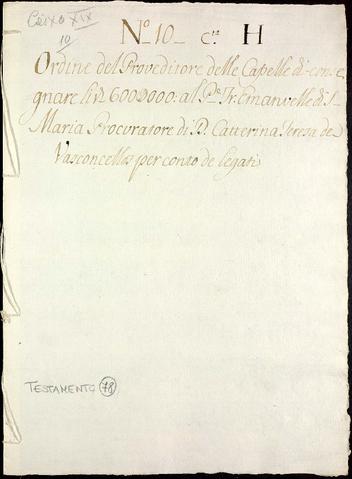 Caixa XIX
10
Nº 10_ c.ª H
Ordine del Proveditore delle Capelle di conse,
gnare 600 2000: al P.e Fr. Emanuelle di S.
Maria Procuratore di D. Catterina Teresa de
Vasconcellos per conto de legati
TESTAMENTO 78